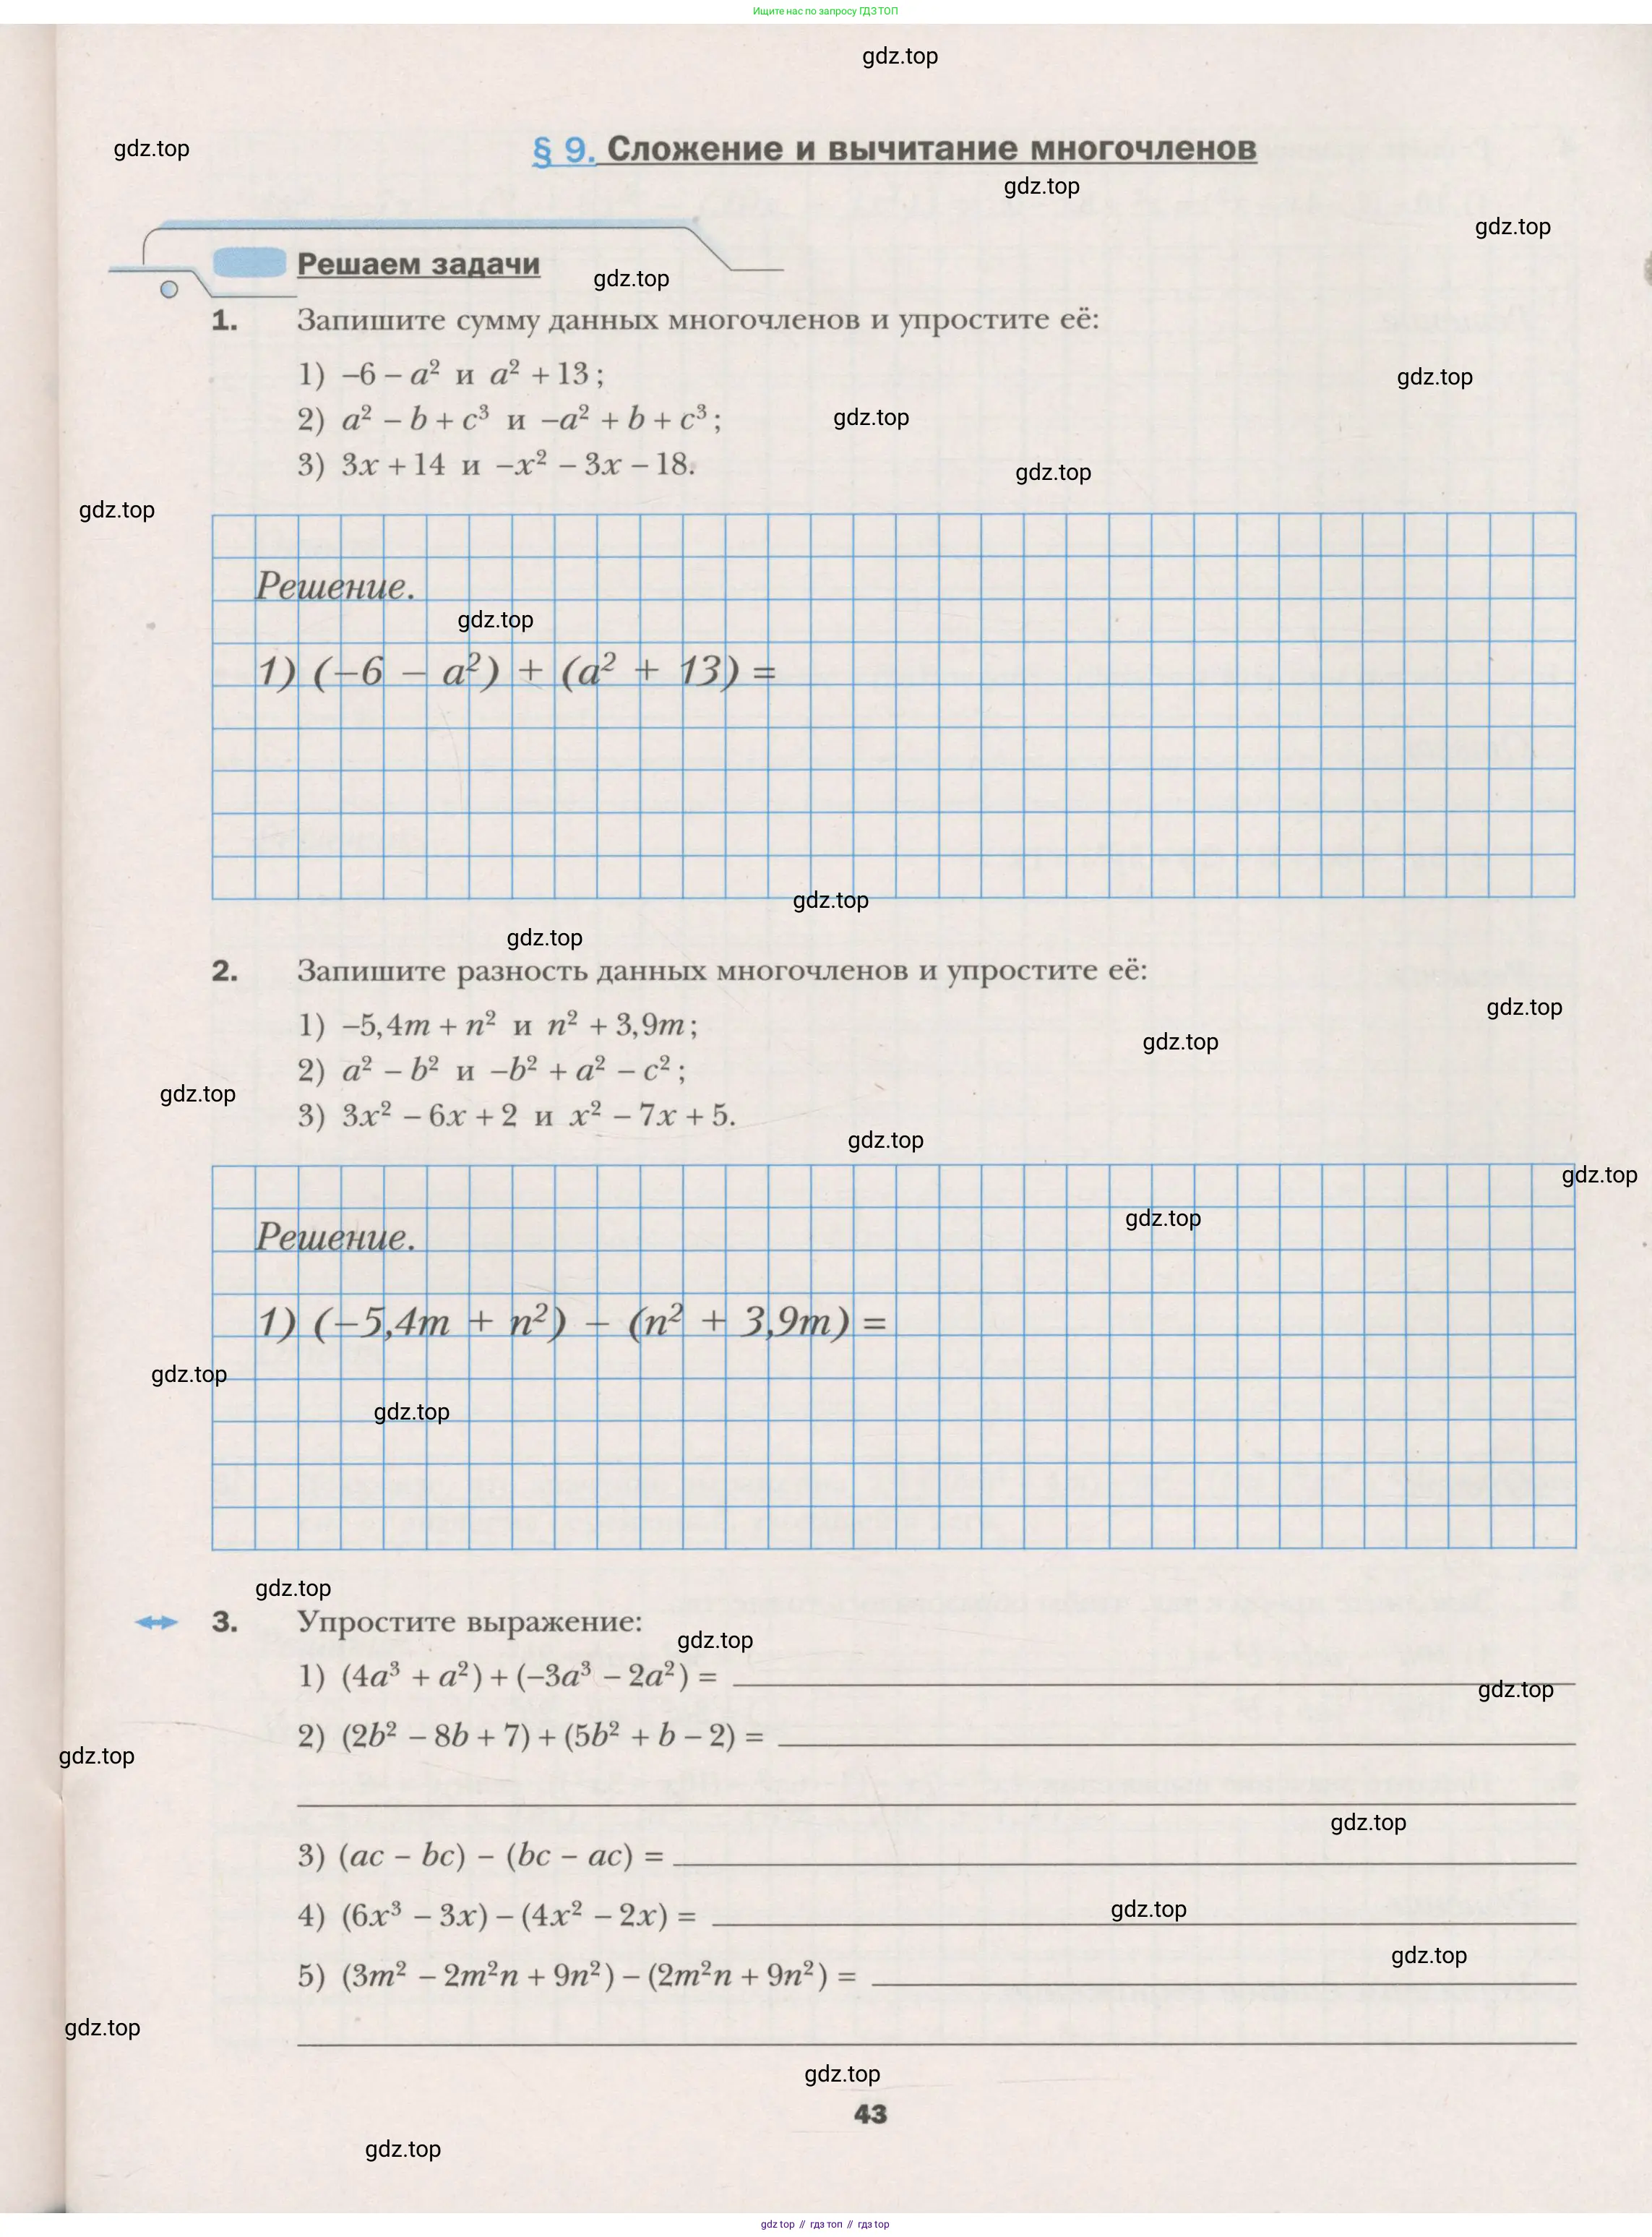 Ищите нас по запросу ГДЗ ТОП
gdz.top
gdz.top
§ 9. Сложение и вычитание многочленов
gdz.top
gdz.top
Решаем задачи
gdz.top
1. Запишите сумму данных многочленов и упростите её:
1) –6 – a² и a² + 13;
gdz.top
2) a² – b + c³ и –a² + b + c³;
gdz.top
3) 3x + 14 и –x² – 3x – 18.
gdz.top
gdz.top
Решение.
gdz.top
1) (–6 – a²) + (a² + 13) =
gdz.top
gdz.top
2. Запишите разность данных многочленов и упростите её:
gdz.top
1) –5,4m + n² и n² + 3,9m;
gdz.top
2) a² – b² и –b² + a² – c²;
gdz.top
3) 3x² – 6x + 2 и x² – 7x + 5.
gdz.top
gdz.top
gdz.top
Решение.
1) (–5,4m + n²) – (n² + 3,9m) =
gdz.top
gdz.top
gdz.top
3. Упростите выражение:
gdz.top
1) (4a³ + a²) + (–3a³ – 2a²) =
gdz.top
2) (2b² – 8b + 7) + (5b² + b – 2) =
gdz.top
gdz.top
3) (ac – bc) – (bc – ac) =
4) (6x³ – 3x) – (4x² – 2x) =
gdz.top
gdz.top
5) (3m² – 2m²n + 9n²) – (2m²n + 9n²) =
gdz.top
gdz.top
43
gdz.top
gdz top // гдз топ // gdz top